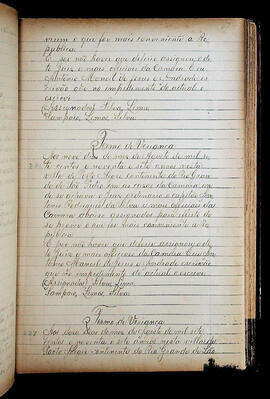 virem o que for mais conveniente a Re
publica.
E por não haver que deferir assignou, o di
to Juiz e mais officiaes da Camara. Eu
Antonio Manoel de Jesus e Andrade es
crivão que no impedimento do actual o
escrevi
(Assignados) Silva, Lima,
Sampaio, Lemos, Silva.
Termo de Veriança
Aos nove dias do mez de Agosto de mil se
te centos e noventa e sete annos nesta
villa de Porto Alegre continente do Rio Gran
de de São Pedro em as casas da Camara, on
de se achava o Juiz ordinario o capitão
Rodrigues da Silva e mais officiaes da
Camara abaixo assignados para effeito de
se prover o que for mais conveniente a Re
publica.
E por não haver que deferir assignou o di
to Juiz e mais officiaes da Camara Eu An
tonio Manoel de Jesus e Andrade escrivão
que no impedimento do actual o escrevi
(Assignados) Silva, Lima,
Sampaio, Lemos, Silva.
Termo de Veriança
Aos doze dias do mez de Agosto de mil sete
centos e noventa e sete annos nesta villa de
Porto Alegre continente do Rio Grande de São